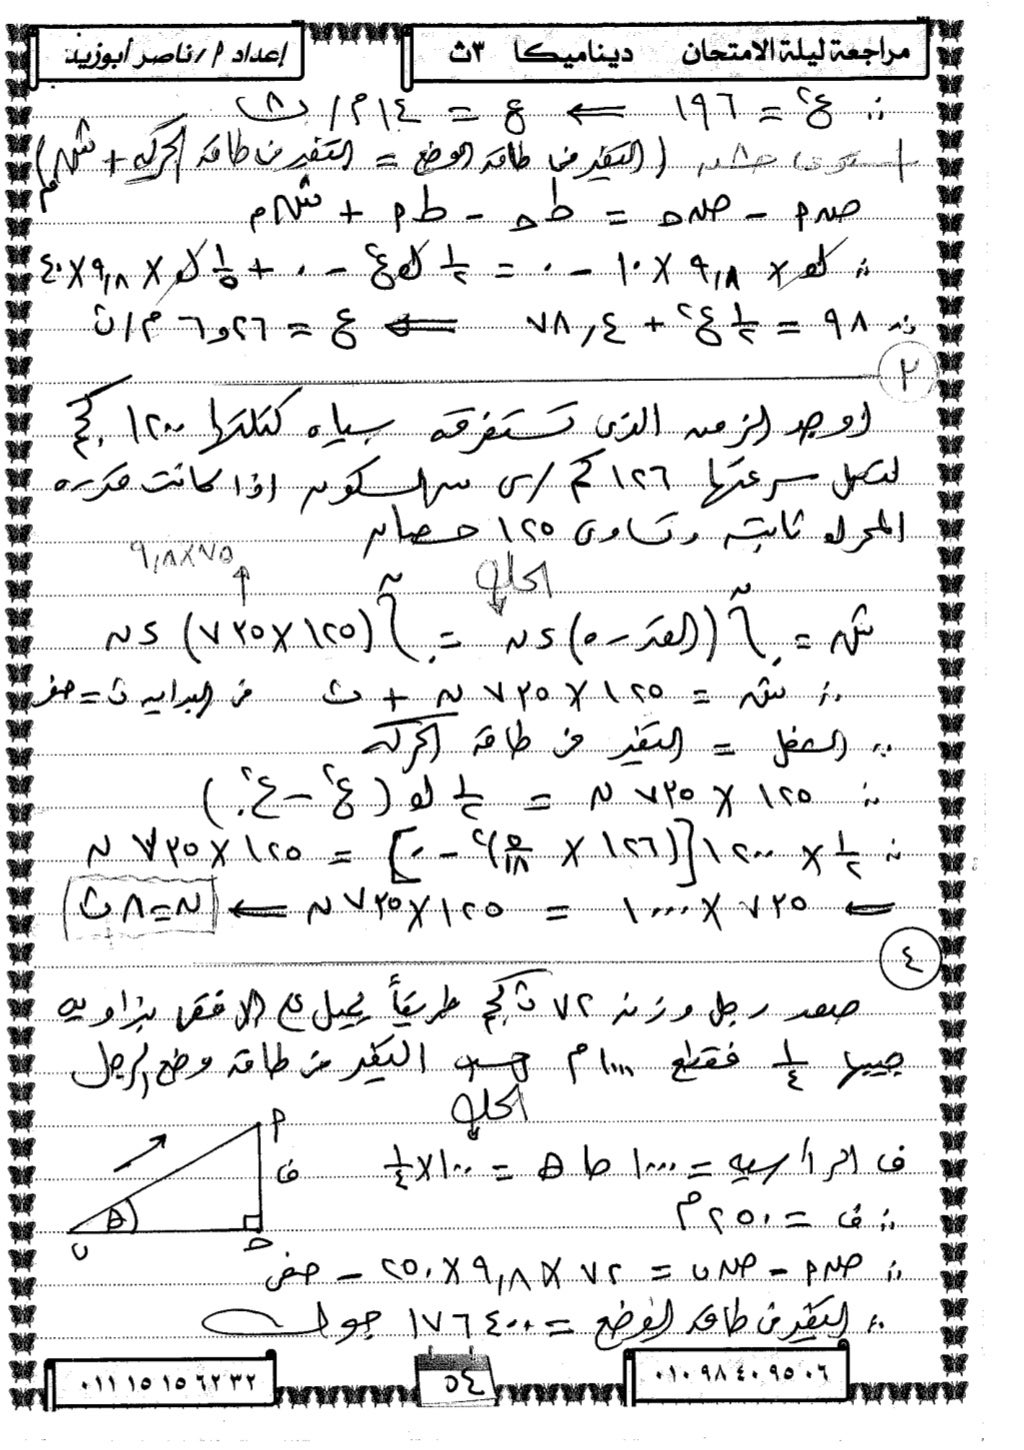 مراجعة ليلة الامتحان ديناميكا ٣ث
إعداد م/ناصر أبوزيد
∴ ع٢ = ١٩٦ ⇐ ع = ١٤ م/ث
(التغير فى طاقة الوضع = التغير فى طاقة الحركة + شـ م)
ضـ م - ضـ حـ = ط حـ - ط م + شـ م
∴ ك × ٩,٨ × ١٠ - ٠ = ١/٢ ك ع٢ - ٠ + ١/٥ ك × ٩,٨ × ٤٠
∴ ٩٨ = ١/٢ ع٢ + ٧٨,٤ ⇐ ع = ٦,٢٦ م/ث
٢
اوجد الزمن الذى تستغرقه سياره كتلتها ١٢٠٠ كجم
لتصل سرعتها ١٢٦ كم/س من السكون اذا كانت قدره
المحرك ثابته وتساوى ١٢٥ حصان
٩,٨×٧٥
الحل
شـ = ∫ (القدره) ء ن = ∫ (١٢٥×٧٣٥) ء ن
∴ شـ = ١٢٥ × ٧٣٥ ن + ث من البدايه ث = صفر
∴ الشغل = التغير فى طاقة الحركة
∴ ١٢٥ × ٧٣٥ ن = ١/٢ ك (ع٢ - ع.٢)
∴ ١/٢ × ١٢٠٠ [(١٢٦ × ٥/١٨)٢ - ٠] = ١٢٥ × ٧٣٥ ن
⇐ ٧٣٥ × ١٠٠٠ = ١٢٥ × ٧٣٥ ن ⇐ ن = ٨ ث
٤
صعد رجل وزنه ٧٢ ث كجم طريقاً يميل على الافقى بزاويه
جيبها ١/٤ فقطع ١٠٠٠ م احسب التغير فى طاقة وضع الرجل
الحل
ف الرأسيه = ١٠٠٠ حا هـ = ١٠٠٠ × ١/٤
∴ ف = ٢٥٠ م
م
ف
هـ
ب
حـ
∴ ضـ م - ضـ ب = ٧٢ × ٩,٨ × ٢٥٠ - صفر
∴ التغير فى طاقة الوضع = ١٧٦٤٠٠ جول
٠١١ ١٥ ١٥ ٦٢ ٣٢
٥٤
٠١٠ ٩٨ ٤٠ ٩٥ ٠٦